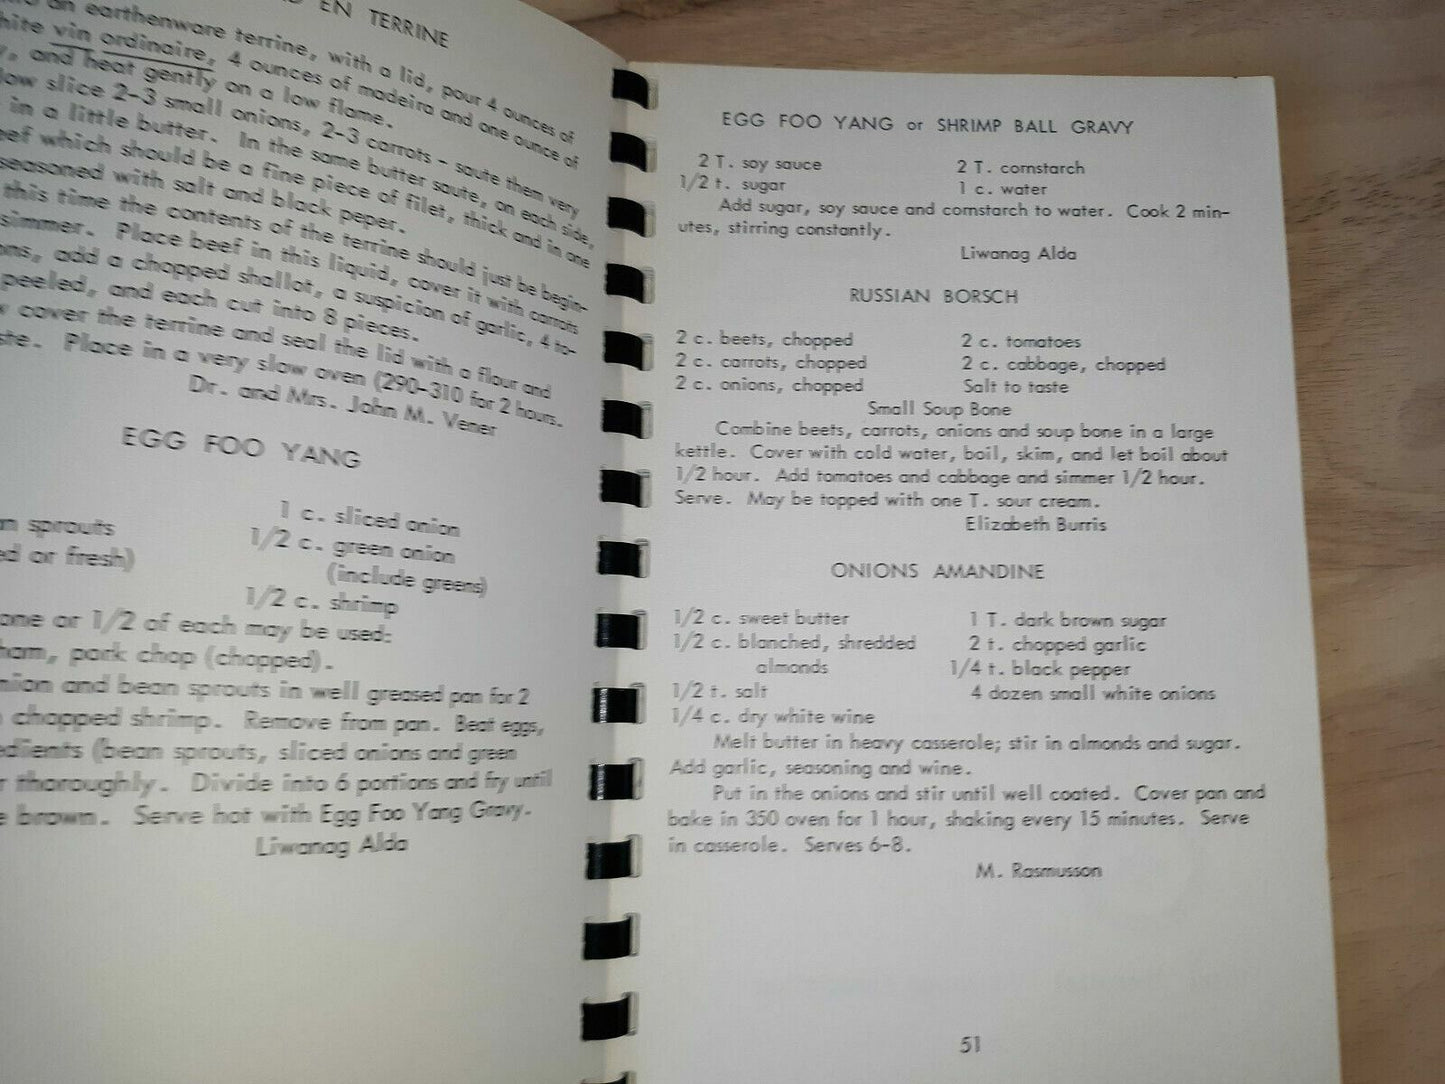 EN TERRINE
an earthenware terrine, with a lid, pour 4 ounces of
vin ordinaire, 4 ounces of madeira and one ounce of
and heat gently on a low flame.
slice 2-3 small onions, 2-3 carrots - saute them very
in a little butter. In the same butter saute, on each side,
which should be a fine piece of filet, thick and in one
seasoned with salt and black peper.
this time the contents of the terrine should just be begin-
simmer. Place beef in this liquid, cover it with carrots
add a chopped shallot, a suspicion of garlic, 4 to-
peeled, and each cut into 8 pieces.
cover the terrine and seal the lid with a flour and
Place in a very slow oven (290-310 for 2 hours.
Dr. and Mrs. John M. Vener
EGG FOO YANG
1 c. sliced onion
sprouts 1/2 c. green onion
or fresh) (include greens)
1/2 c. shrimp
one or 1/2 of each may be used:
ham, pork chop (chopped).
and bean sprouts in well greased pan for 2
chopped shrimp. Remove from pan. Beat eggs,
(bean sprouts, sliced onions and green
thoroughly. Divide into 6 portions and fry until
brown. Serve hot with Egg Foo Yang Gravy.
Liwanag Alda
EGG FOO YANG or SHRIMP BALL GRAVY
2 T. soy sauce 2 T. cornstarch
1/2 t. sugar 1 c. water
Add sugar, soy sauce and cornstarch to water. Cook 2 min-
utes, stirring constantly.
Liwanag Alda
RUSSIAN BORSCH
2 c. beets, chopped 2 c. tomatoes
2 c. carrots, chopped 2 c. cabbage, chopped
2 c. onions, chopped Salt to taste
Small Soup Bone
Combine beets, carrots, onions and soup bone in a large
kettle. Cover with cold water, boil, skim, and let boil about
1/2 hour. Add tomatoes and cabbage and simmer 1/2 hour.
Serve. May be topped with one T. sour cream.
Elizabeth Burris
ONIONS AMANDINE
1/2 c. sweet butter 1 T. dark brown sugar
1/2 c. blanched, shredded 2 t. chopped garlic
almonds 1/4 t. black pepper
1/2 t. salt 4 dozen small white onions
1/4 c. dry white wine
Melt butter in heavy casserole; stir in almonds and sugar.
Add garlic, seasoning and wine.
Put in the onions and stir until well coated. Cover pan and
bake in 350 oven for 1 hour, shaking every 15 minutes. Serve
in casserole. Serves 6-8.
M. Rasmusson
51